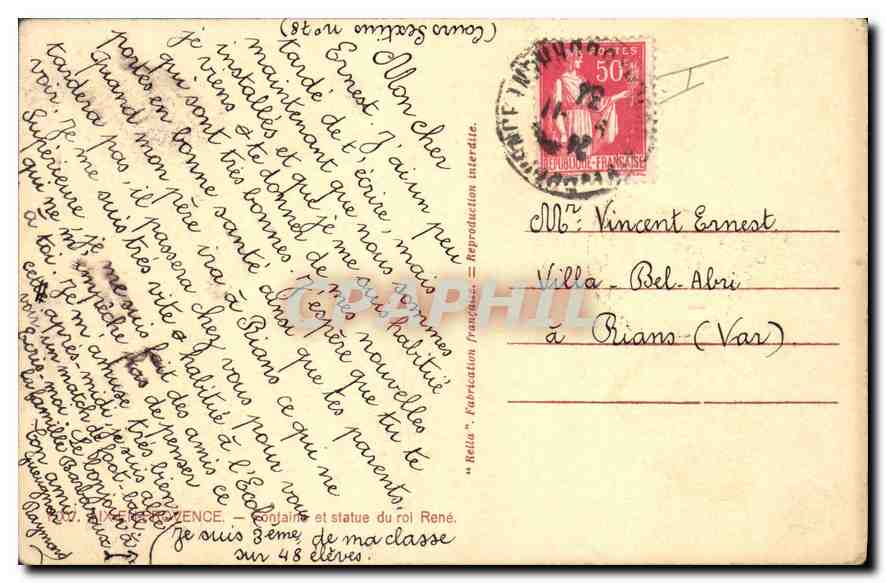 (Cours Sextius n° 78)
Mon cher
Ernest. J'ai un peu
tardé de t'écrire, mais
maintenant que nous sommes
installés et que je me suis habitué
je viens te donner de mes nouvelles
qui sont très bonnes. J'espère que tu te
portes en bonne santé ainsi que tes parents.
Quand mon père ira à Rians ce qui ne
tardera pas, il passera chez vous pour vous
voir. Je me suis très vite habitué à l'École
Supérieure, je me suis fait des amis ce
qui ne m'empêche pas de penser
à toi. Je m'amuse très bien,
cet après-midi, je suis allé
voir un match de foot-ball.
Écris moi. Le bonjour à
la famille Barbaroux
ton ami
Gueugnon
Raymond
(Je suis 3ème de ma classe
sur 48 élèves.
AIX-EN-PROVENCE. — Fontaine et statue du roi René.
"Rella". Fabrication française. = Reproduction interdite.
POSTES
50c
RÉPUBLIQUE-FRANÇAISE
Mr: Vincent Ernest
Villa - Bel-Abri
à Rians (Var)
CRAPHIL